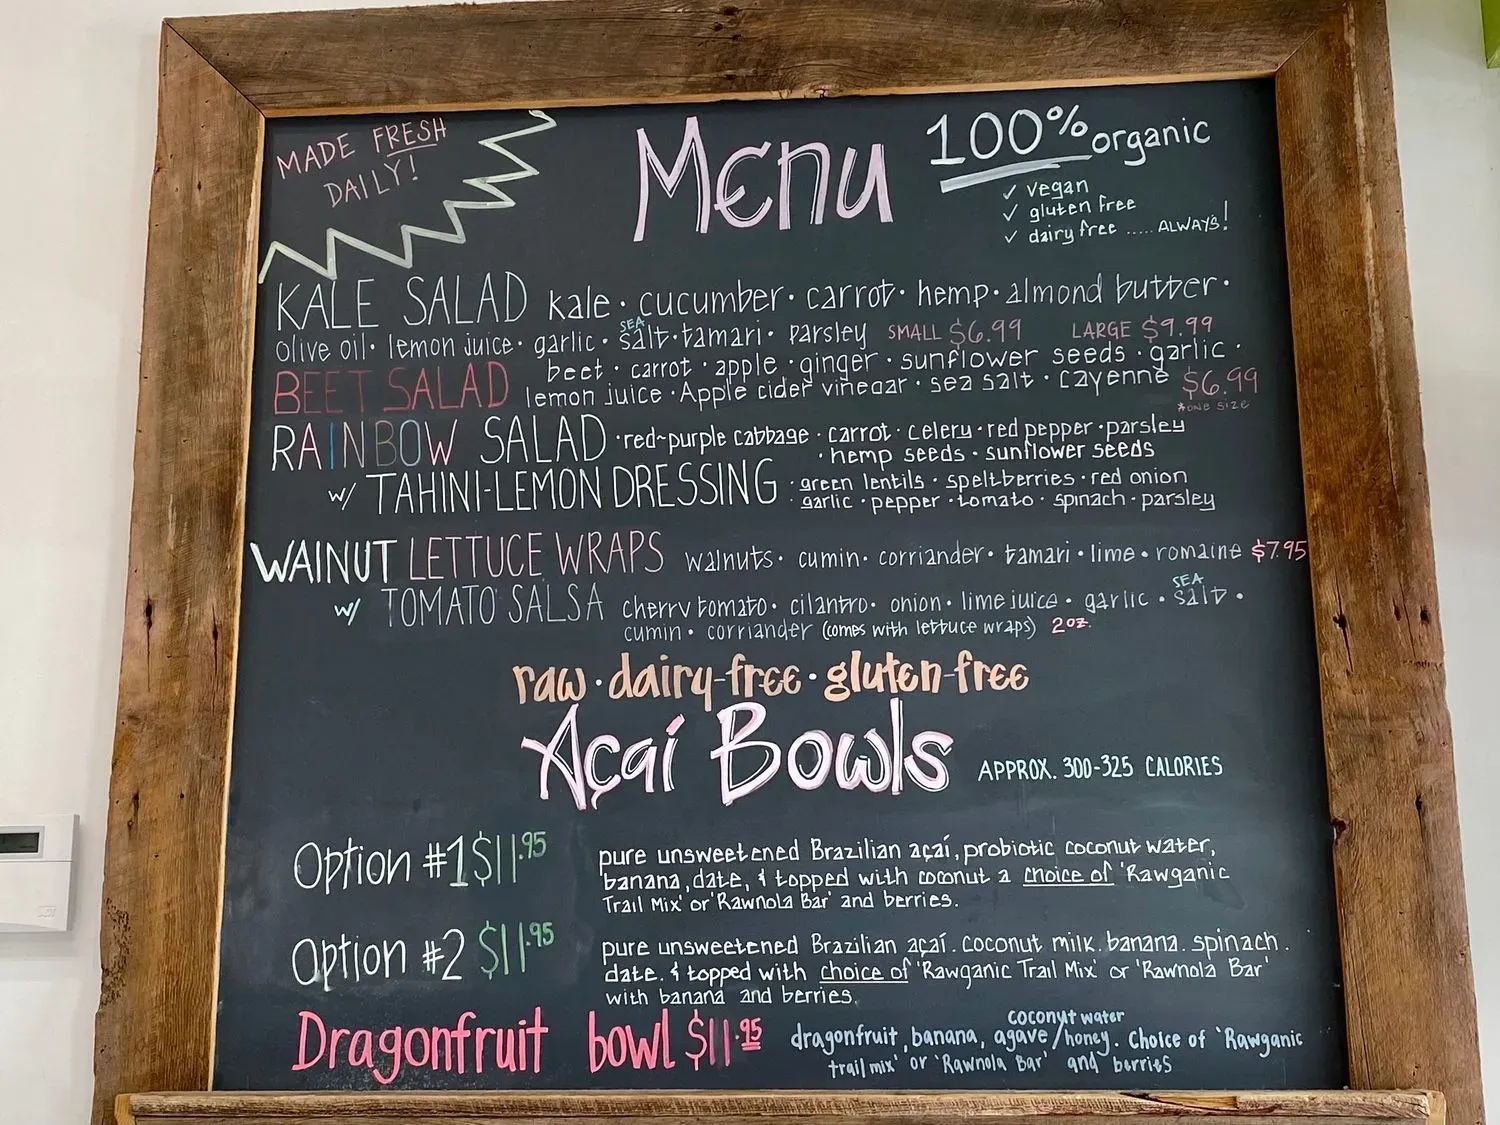 MADE FRESH
DAILY!
Menu
100% organic
✓ vegan
✓ gluten free
✓ dairy free ..... ALWAYS!
KALE SALAD kale · cucumber · carrot · hemp · almond butter ·
olive oil · lemon juice · garlic · SEA salt · tamari · parsley SMALL $6.99 LARGE $9.99
BEET SALAD beet · carrot · apple · ginger · sunflower seeds · garlic ·
lemon juice · Apple cider vinegar · sea salt · cayenne $6.99
*ONE SIZE
RAINBOW SALAD · red~purple cabbage · carrot · celery · red pepper · parsley
· hemp seeds · sunflower seeds
w/ TAHINI-LEMON DRESSING · green lentils · speltberries · red onion
· garlic · pepper · tomato · spinach · parsley
WALNUT LETTUCE WRAPS walnuts · cumin · corriander · tamari · lime · romaine $7.95
w/ TOMATO SALSA cherry tomato · cilantro · onion · lime juice · garlic · SEA salt ·
cumin · corriander (comes with lettuce wraps) 2oz.
raw · dairy-free · gluten-free
Açaí Bowls APPROX. 300-325 CALORIES
Option #1 $11.95 pure unsweetened Brazilian açaí, probiotic coconut water,
banana, date, & topped with coconut a choice of 'Rawganic
Trail Mix' or 'Rawnola Bar' and berries.
Option #2 $11.95 pure unsweetened Brazilian açaí. coconut milk. banana. spinach.
date. & topped with choice of 'Rawganic Trail Mix' or 'Rawnola Bar'
with banana and berries.
Dragonfruit bowl $11.95 dragonfruit, banana, coconut water agave/honey. Choice of 'Rawganic
trail mix' or 'Rawnola Bar' and berries